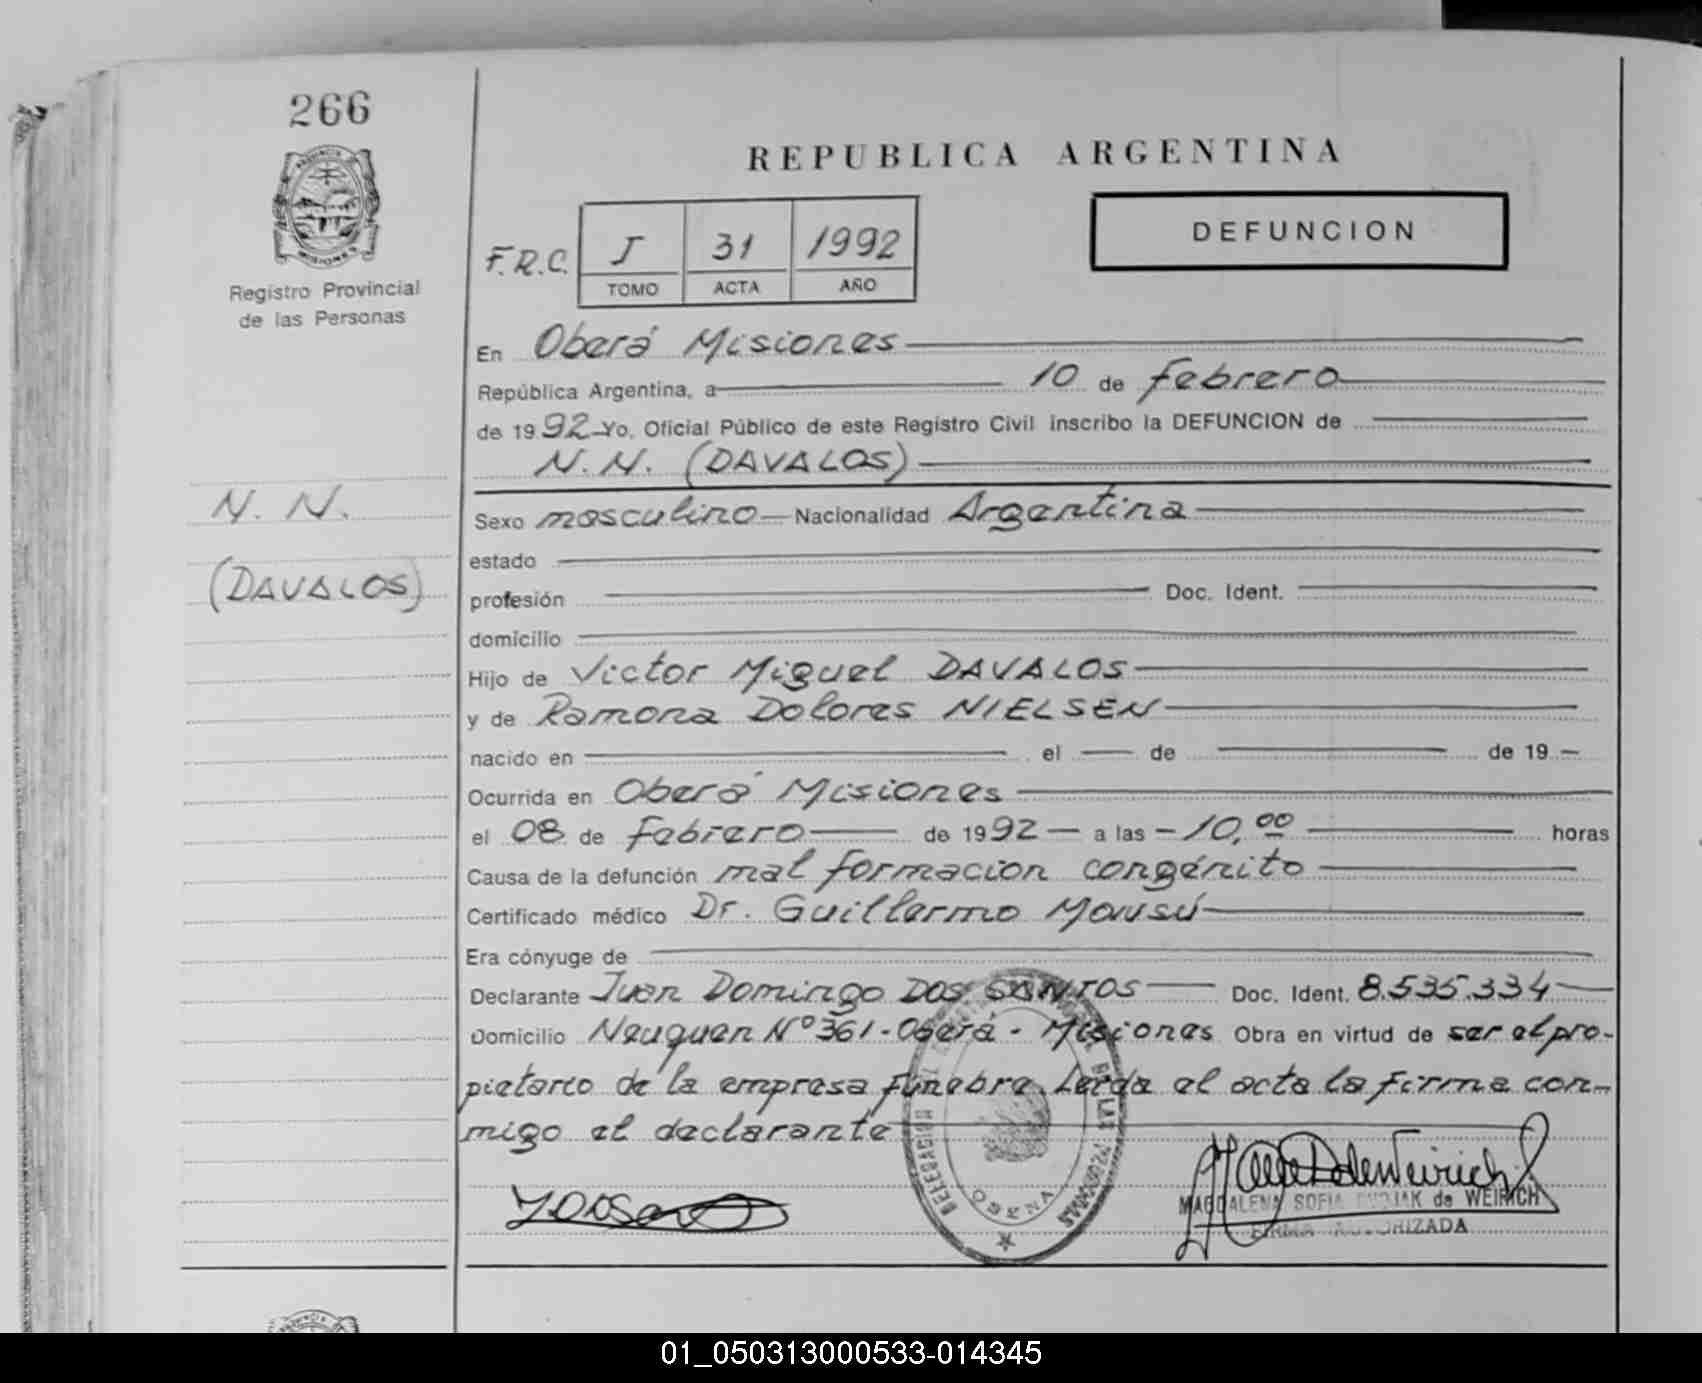 266
REPUBLICA ARGENTINA
DEFUNCION
F.R.C. I 31 1992
TOMO ACTA AÑO
MISIONES
Registro Provincial
de las Personas
En Oberá Misiones
República Argentina, a 10 de febrero
de 1992 Yo, Oficial Público de este Registro Civil inscribo la DEFUNCION de
N.N. (DAVALOS)
N. N.
(DAVALOS)
Sexo masculino Nacionalidad Argentina
estado
profesión Doc. Ident.
domicilio
Hijo de Victor Miguel DAVALOS
y de Ramona Dolores NIELSEN
nacido en el de de 19
Ocurrida en Oberá Misiones
el 08 de febrero de 1992 a las 10,00 horas
Causa de la defunción mal formacion congénito
Certificado médico Dr. Guillermo
Era cónyuge de
Declarante Juan Domingo DOS SANTOS Doc. Ident. 8.535.334
Domicilio Neuquen Nº 361 - Oberá - Misiones Obra en virtud de ser el pro-
pietario de la empresa fúnebre. Leída el acta la firma con-
migo el declarante
DELEGACION DE LAS PERSONAS
MAGDALENA SOFIA de WEIRICH
FIRMA AUTORIZADA
01_050313000533-014345